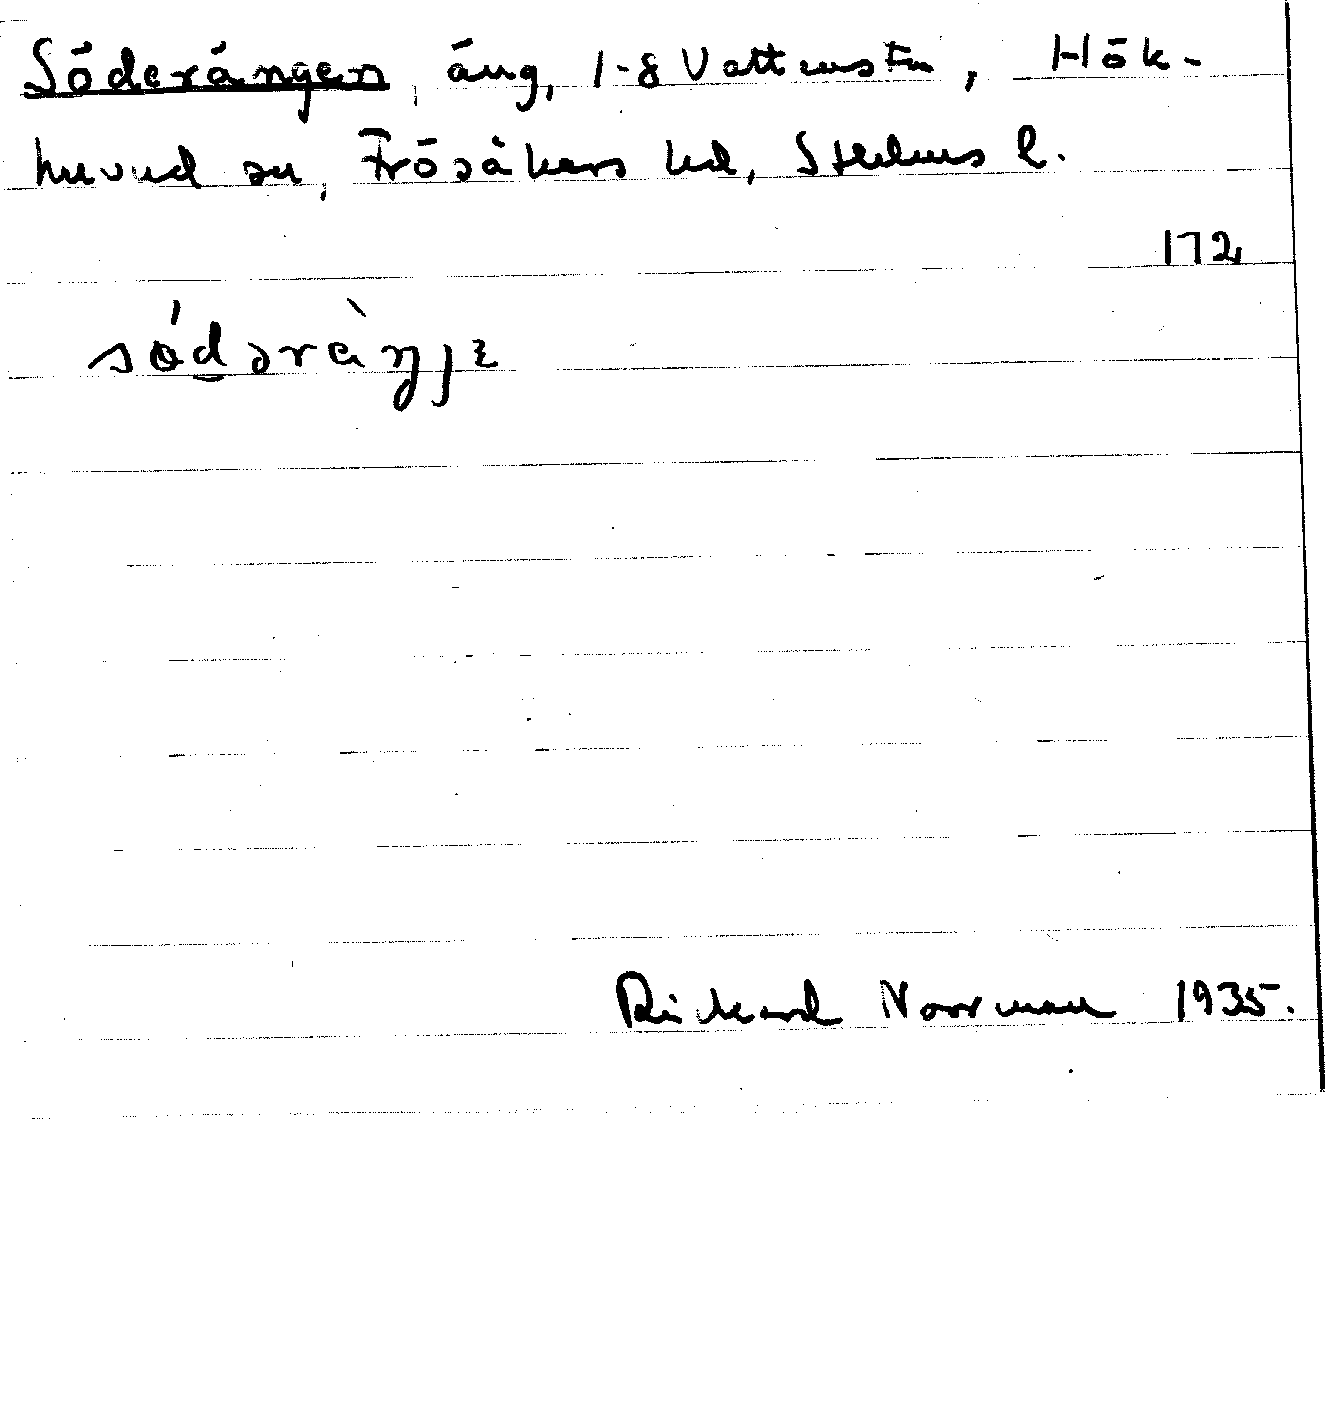 Söderängen, äng, 1-8 Vattensta, Hök-
huvud sn, Frösåkers hd, Sthlms l.
172
södəràŋɟɛ
Rickard Norrman 1935.